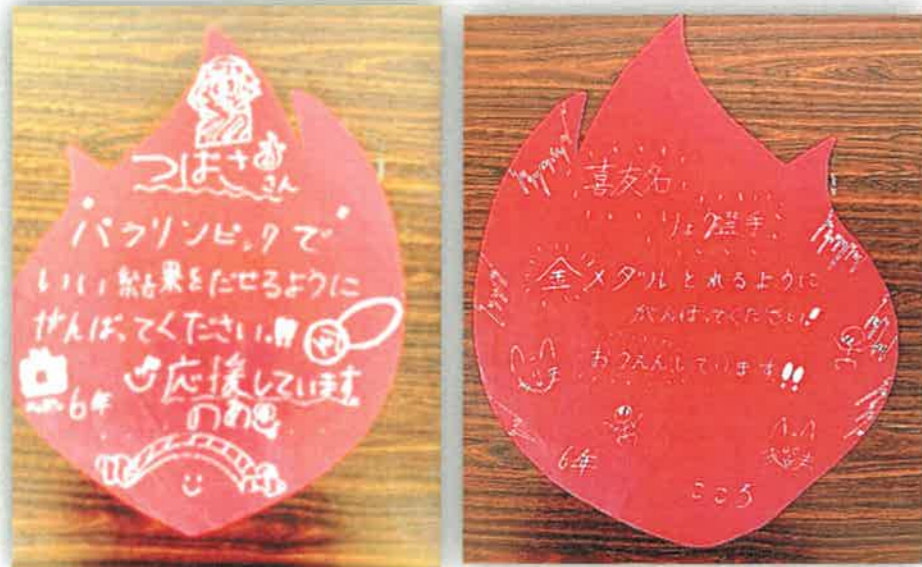 つばさ
さん
パラリンピックで
いい結果をだせるように
がんばってください!!
応援しています
6年
のあ
喜友名
りょう選手
金メダルとれるように
がんばってください!
おうえんしています!!
6年
こころ